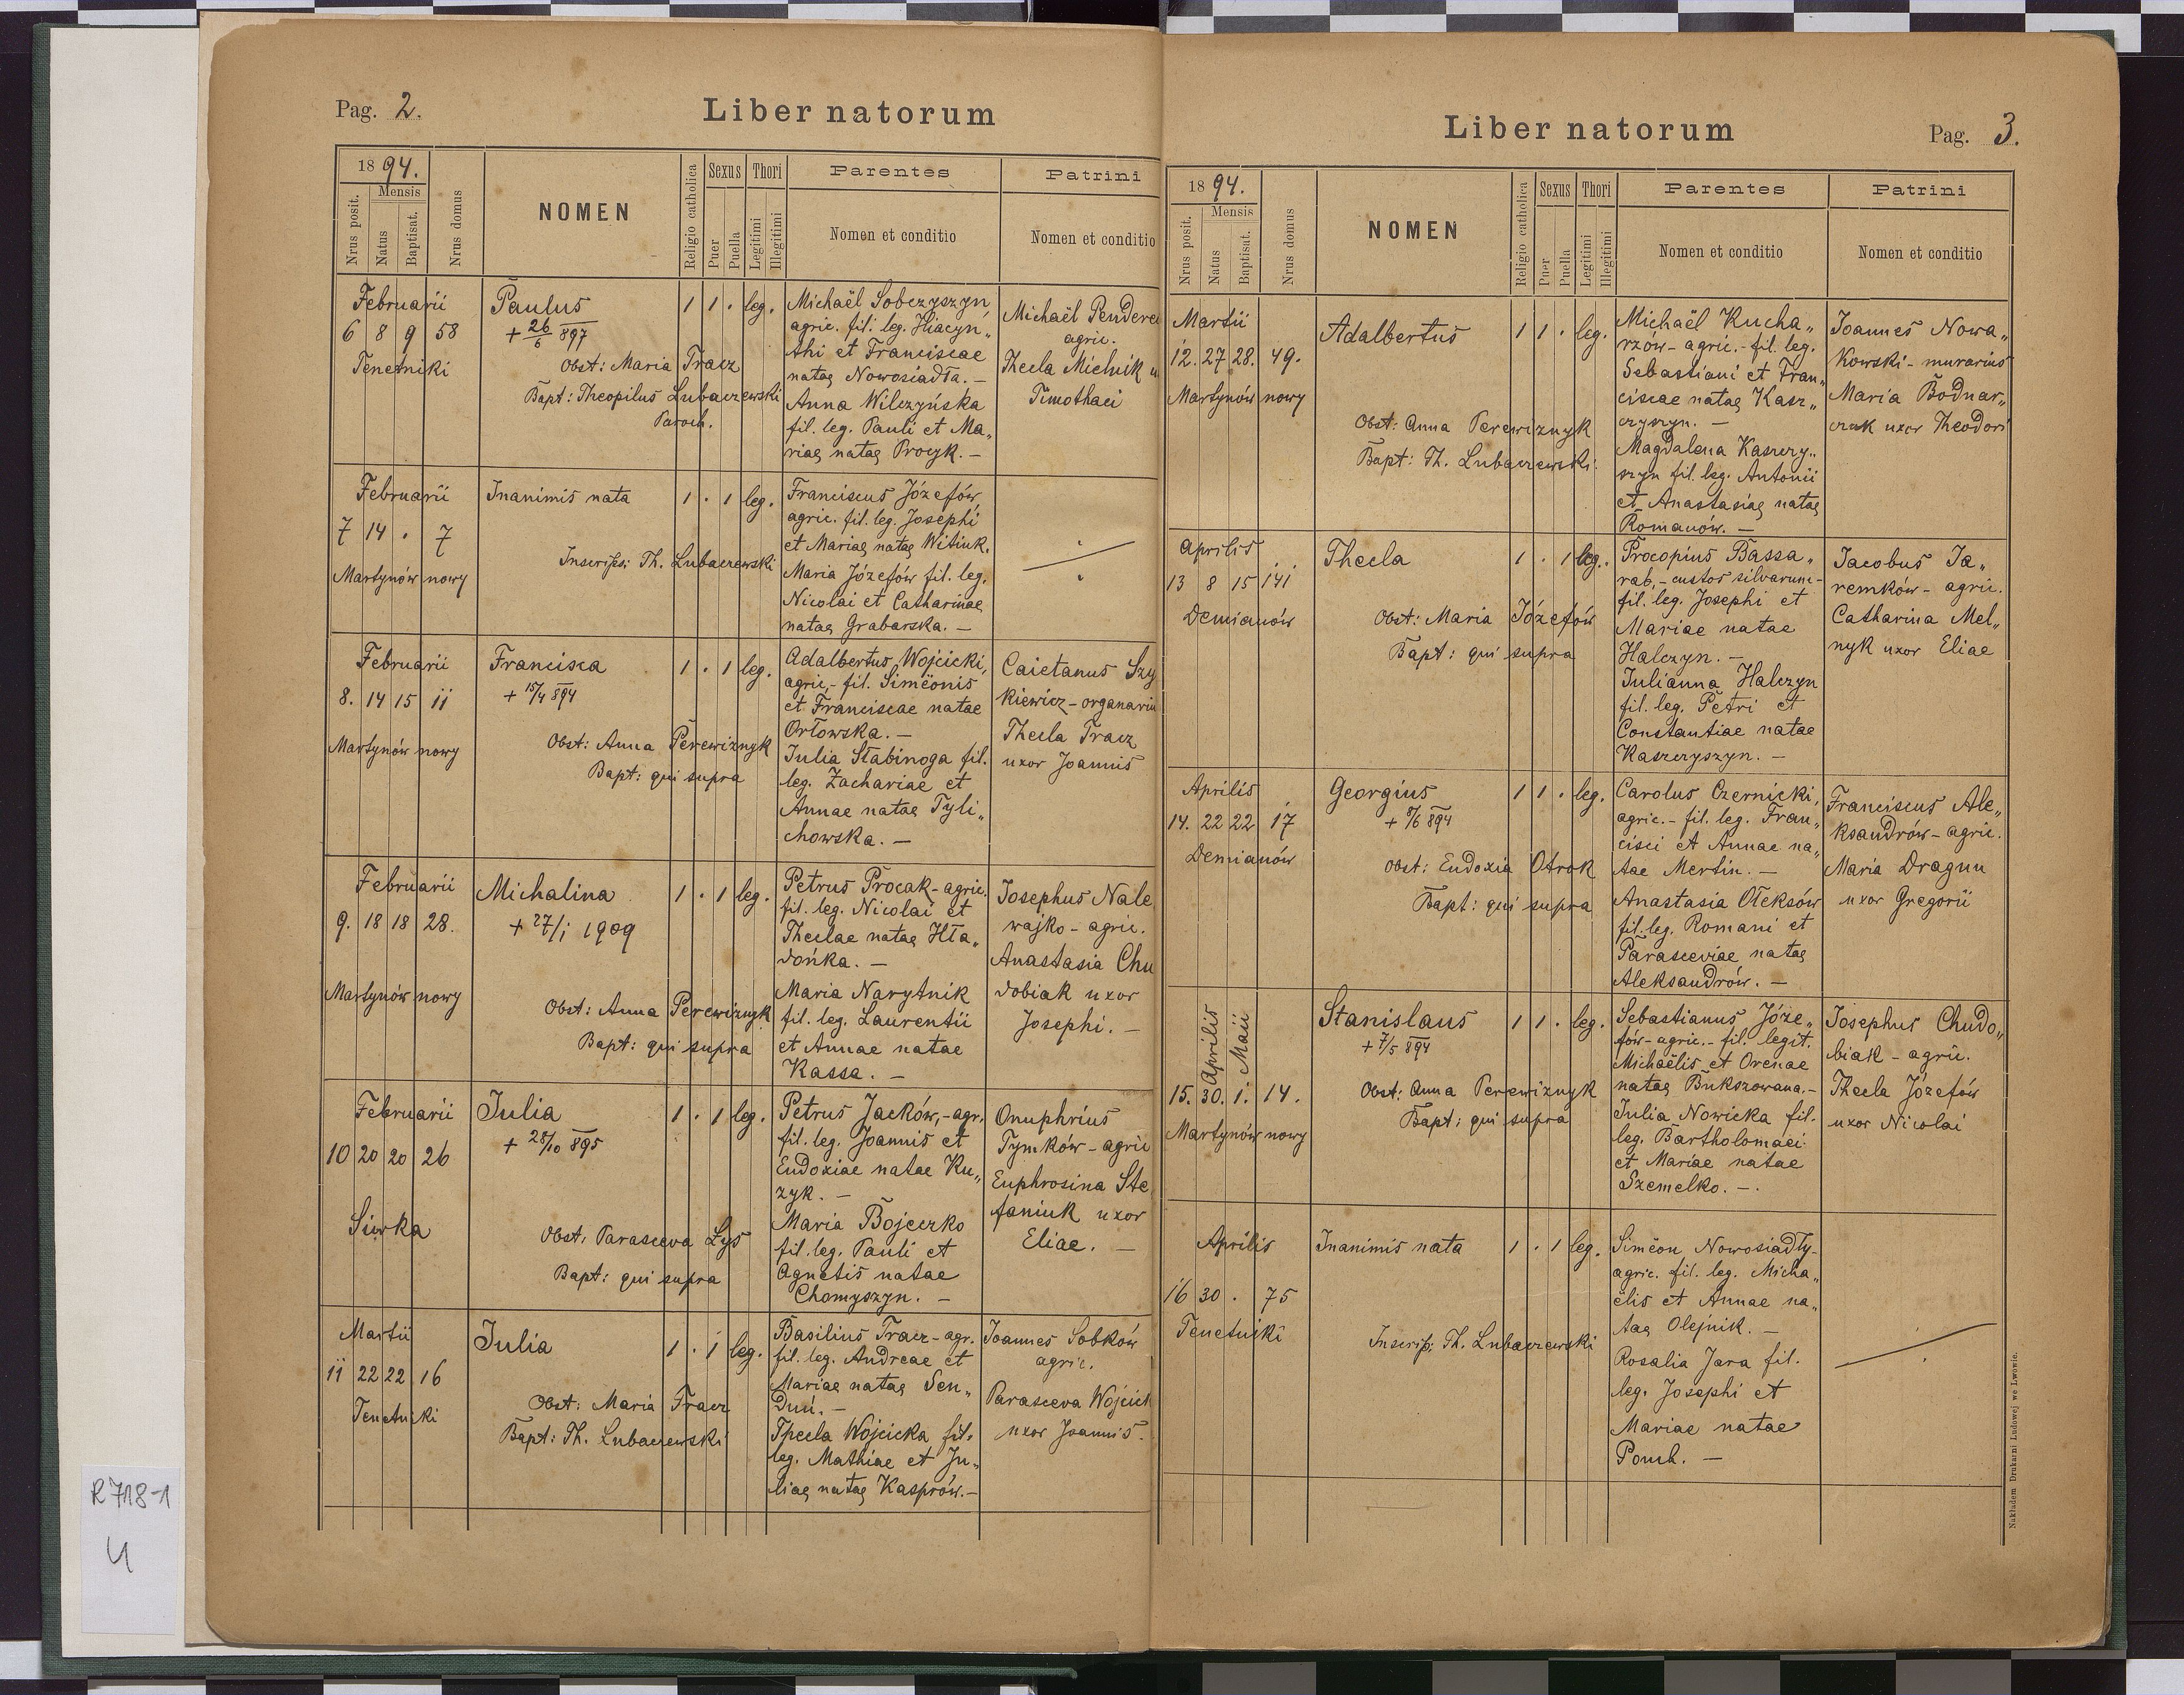 Pag. 2.
Liber natorum
1894.
Mensis
Nrus posit.
Natus
Baptisat.
Nrus domus
NOMEN
Religio catholica
Sexus
Puer
Puella
Thori
Legitimi
Illegitimi
Parentes
Nomen et conditio
Patrini
Nomen et conditio
Februarii
6 8 9 58
Tenetniki
Paulus
+ 26/6 897
Obst: Maria Tracz
Bapt: Theopilus Lubaczewski
Paroch.
1 1 . leg.
Michaël Sobczyszyn
agric. fil. leg. Hiacyn„
thi et Franciscae
natae Nowosiadła. –
Anna Wilczyńska
fil. leg. Pauli et Ma„
riae natae Procyk. –
Michaël
agric.
Thecla Michnik
Timothaei
Februarii
7 14 . 7
Martynów nowy
Inanimis nata
Inscrips: Th. Lubaczewski
1 . 1 leg.
Franciscus Józefów
agric. fil. leg. Josephi
et Mariae natae Witiuk.
Maria Józefów fil. leg.
Nicolai et Catharinae
natae Grabarska. –
Februarii
8. 14 15 11
Martynów nowy
Francisca
+ 15/4 894
Obst: Anna Perewiznyk
Bapt: qui supra
1 . 1 leg.
Adalbertus Wojcicki,
agric, – fil. Simëonis
et Franciscae natae
Orłowska. –
Julia Słabinoga fil.
leg. Zachariae et
Annae natae Tyli„
chowska. –
Caietanus Szy
kiewicz – organariu
Thecla Tracz
uxor Joannis
Februarii
9. 18 18 28.
Martynów nowy
Michalina
+ 27/1 1909
Obst: Anna Perewiznyk
Bapt: qui supra
1 . 1 leg.
Petrus Procak – agric.
fil. leg. Nicolai et
Theclae natae Hła„
dońka. –
Maria Narytnik
fil. leg. Laurentii
et Annae natae
Kassa. –
Josephus Nale
wajko – agric.
Anastasia Chu
dobiak uxor
Josephi. –
Februarii
10 20 20 26
Siwka
Julia
+ 28/10 895
Obst: Parasceva Łys
Bapt: qui supra
1 . 1 leg.
Petrus Jacków, – agr.
fil. leg. Joannis et
Eudoxiae natae Ku„
zyk. –
Maria Bojeczko
fil. leg. Pauli et
Agnetis natae
Chomyszyn. –
Onuphrius
Tymków – agric
Euphrosina Ste
faniuk uxor
Eliae. –
Martii
11 22 22 16
Tenetniki
Julia
Obst: Maria Tracz
Bapt: Th. Lubaczewski
1 . 1 leg.
Basilius Tracz – agr.
fil. leg. Andreae et
Mariae natae Sen„
Duń. –
Thecla Wojcicka fil.
leg. Mathiae et Ju„
liae natae Kasprów. –
Joannes Sobków
agric.
Parasceva Wojcick
uxor Joannis.
Liber natorum
Pag. 3.
1894.
Mensis
Nrus posit.
Natus
Baptisat.
Nrus domus
NOMEN
Religio catholica
Sexus
Puer
Puella
Thori
Legitimi
Illegitimi
Parentes
Nomen et conditio
Patrini
Nomen et conditio
Martii
12. 27 28. 49.
Martynów nowy
Adalbertus
Obst: Anna Perewiznyk
Bapt: Th. Lubaczewski.
1 1 . leg.
Michaël Kucha„
rzów – agric. – fil. leg.
Sebastiani et Fran„
ciscae natae Kasz„
czyszyn. –
Magdalena Kaszczy„
szyn fil. leg. Antonii
et Anastasiae natae
Romanów. –
Joannes Nowa„
kowski – murarius
Maria Bodnar„
czuk uxor Theodori
Aprilis
13 8 15 141
Demianów
Thecla
Obst: Maria Józefów
Bapt: qui supra
1 . 1 leg.
Procopius Bassa„
rab, – custos silvarum –
fil. leg. Josephi et
Mariae natae
Halczyn. –
Julianna Halczyn
fil. leg. Petri et
Constantiae natae
Kaszczyszyn. –
Jacobus Ja„
remków – agric.
Catharina Mel„
nyk uxor Eliae
Aprilis
14. 22 22 17
Demianów
Georgius
+ 8/6 894
Obst: Eudoxia Otrok
Bapt: qui supra
1 1 . leg.
Carolus Czernicki,
agric. – fil. leg. Fran„
cisci et Annae na„
tae Mertin. –
Anastasia Ołeksów
fil. leg. Romani et
Parasceviae natae
Aleksandrów. –
Franciscus Ale„
ksandrów – agric.
Maria Dragun
uxor Gregorii
Aprilis
Maii
15. 30. 1. 14.
Martynów nowy
Stanislaus
+ 7/5 894
Obst: Anna Perewiznyk
Bapt: qui supra
1 1 . leg.
Sebastianus Józe„
fów – agric. – fil. legit.
Michaëlis et Orenae
natae Bukszowana. –
Julia Nowicka fil.
leg. Bartholomaei
et Mariae natae
Szemelko. –.
Josephus Chudo„
biak – agric.
Thecla Józefów
uxor Nicolai
Aprilis
16 30 . 75
Tenetniki
Inanimis nata
Inscrip: Th. Lubaczewski
1 . 1 leg.
Simëon Nowosiadły –
agric. fil. leg. Micha„
ëlis et Annae na„
tae Olejnik. –
Rosalia Jara fil.
leg. Josephi et
Mariae natae
Nakładem Drukarni Ludowej we Lwowie.
R718-1
4